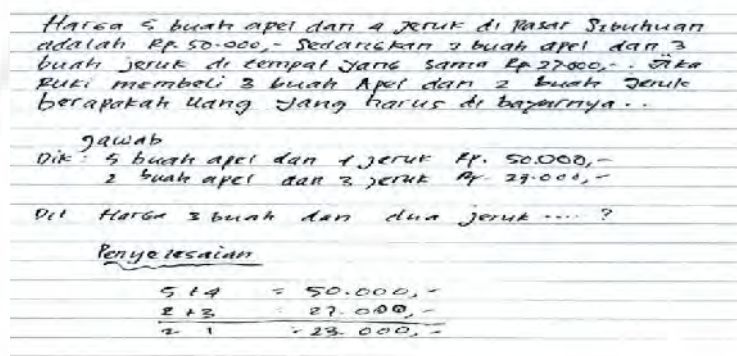 Harga 5 buah apel dan 4 jeruk di Pasar Sibuhuan
adalah Rp. 50.000,- Sedangkan 2 buah apel dan 3
buah jeruk di tempat yang sama Rp 27.000,-. Jika
Ruki membeli 3 buah Apel dan 2 buah Jeruk
berapakah uang yang harus di bayarnya..
Jawab
Dik : 5 buah apel dan 4 jeruk Rp. 50.000,-
2 buah apel dan 3 jeruk Rp 27.000,-
Dit Harga 3 buah dan dua jeruk .... ?
Penyelesaian
5 + 4 = 50.000,-
2 + 3 27.000,-
2 1 = 23.000,-